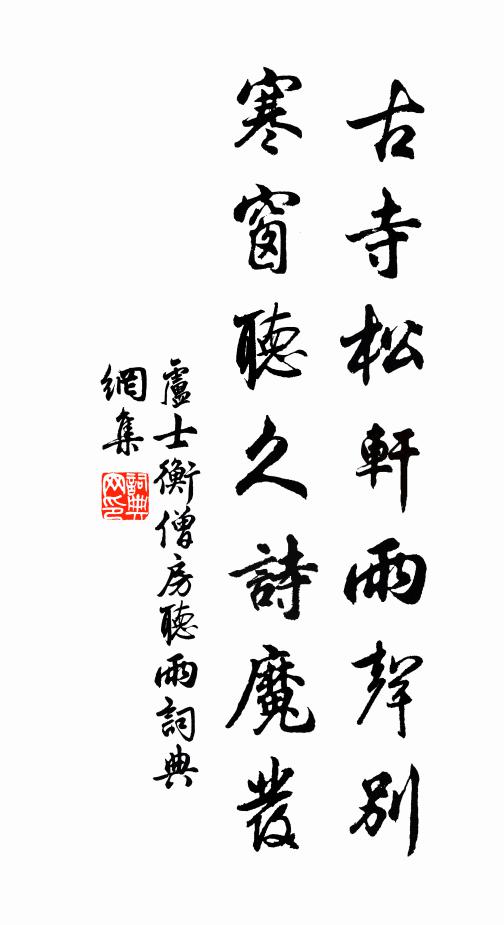 古寺松軒雨聲別
寒窗聽久詩魔發
盧士衡僧房聽雨詞典
網集
詞典
网印